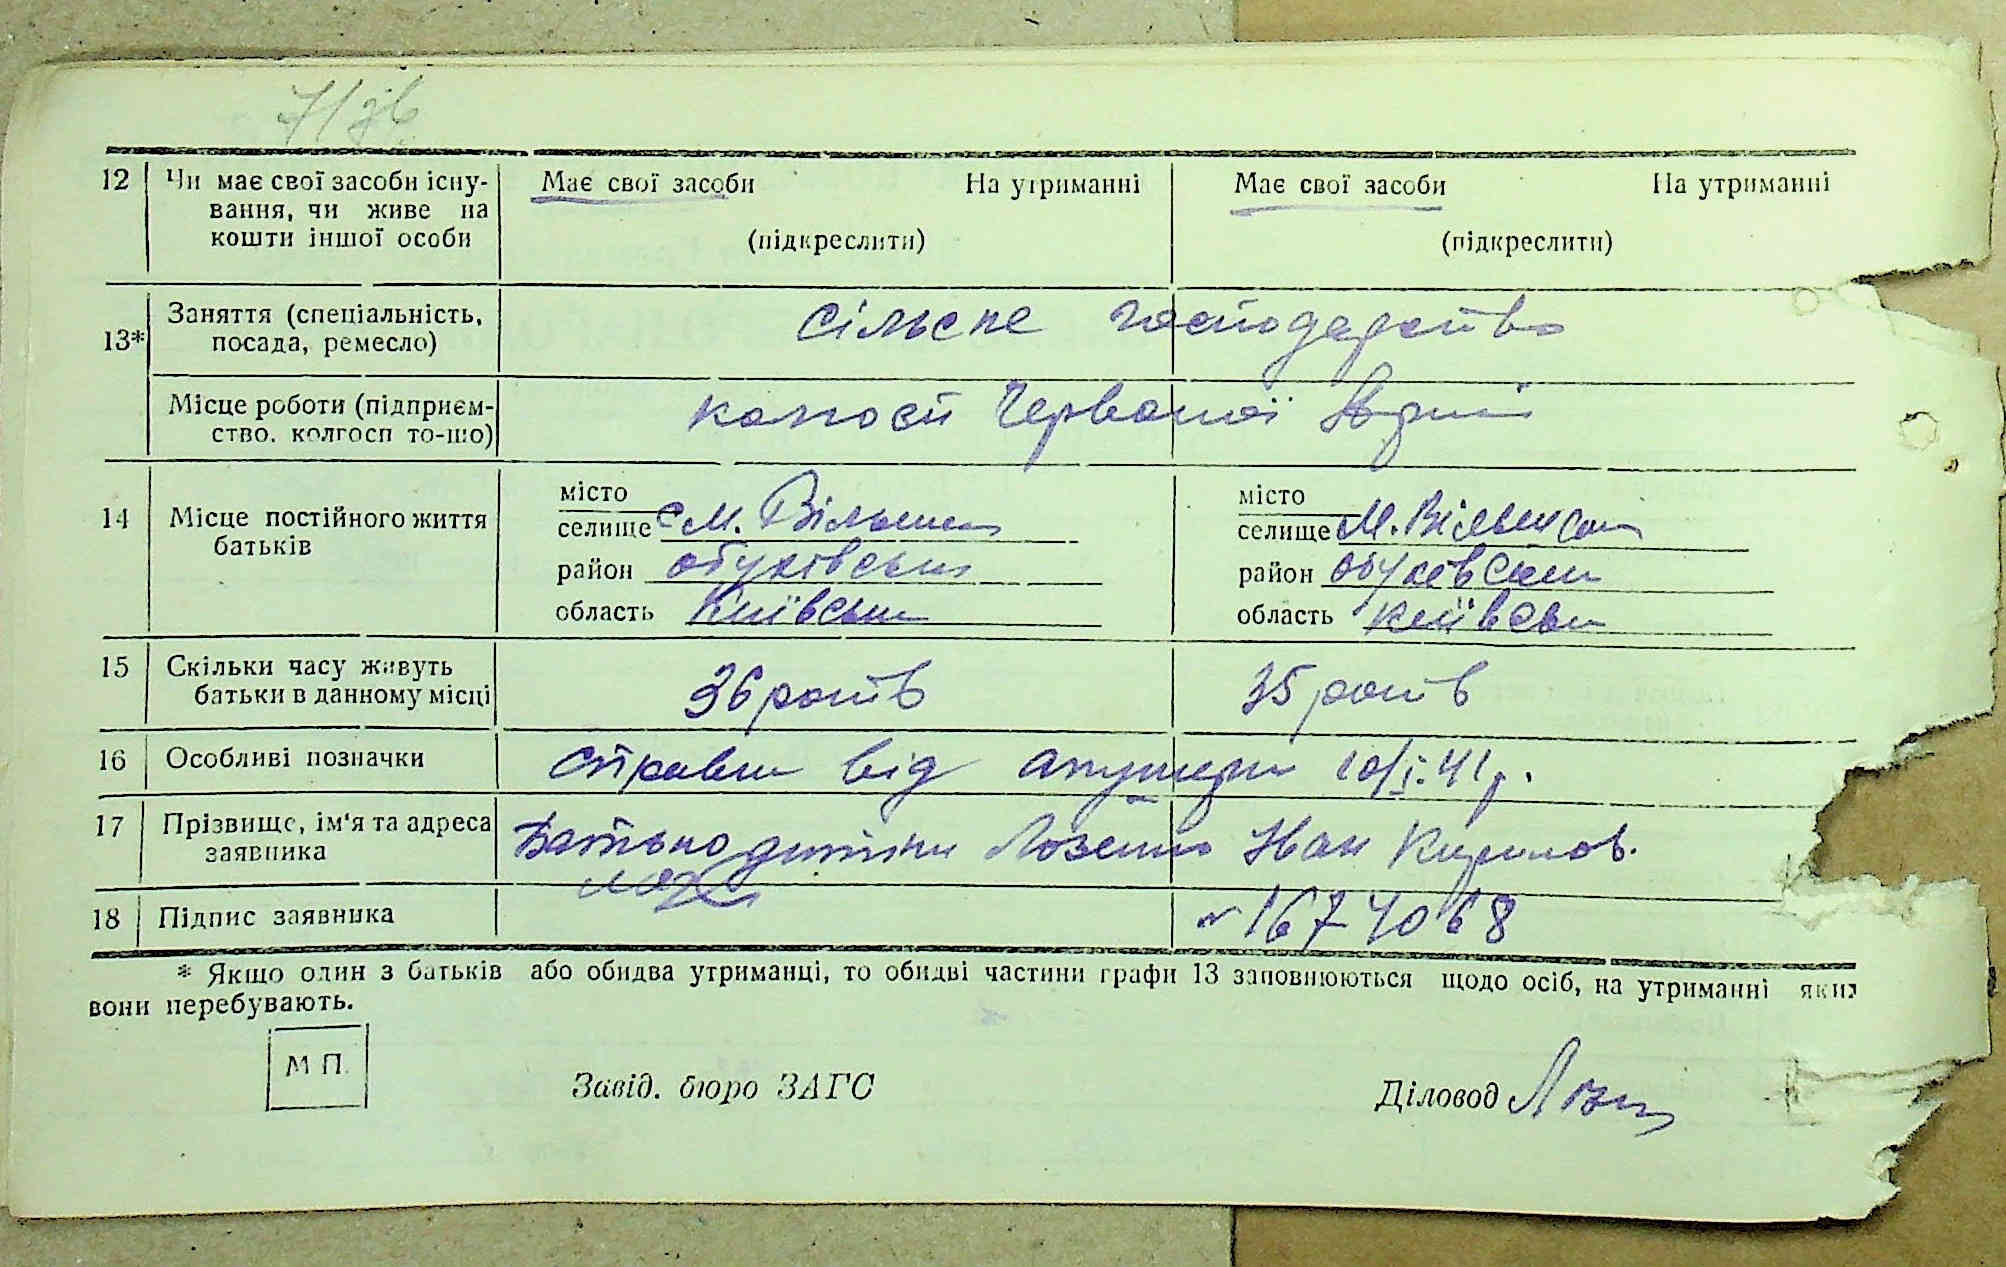 12 Чи має свої засоби існу- Має свої засоби На утриманні Має свої засоби На утриманні
вання, чи живе на
кошти іншої особи (підкреслити) (підкреслити)
13* Заняття (спеціальність, Сільське господарство
посада, ремесло)
Місце роботи (підприєм- колгосп Червоної Армії
ство, колгосп то-що)
14 Місце постійного життя батьків
місто
селище с М. Вільшан
район обухівськи
область Київськ
місто
селище М. Вільшан
район обухівськи
область Київськ
15 Скільки часу живуть 36 років 35 років
батьки в данному місці
16 Особливі позначки Справка від акушерки 10/I.41 р.
17 Прізвище, ім'я та адреса Батько дитини Лозенко Іван Кирилов.
заявника
18 Підпис заявника № 1674068
* Якщо один з батьків або обидва утриманці, то обидві частини графи 13 заповнюються щодо осіб, на утриманні яких
вони перебувають.
М П.
Завід. бюро ЗАГС Діловод